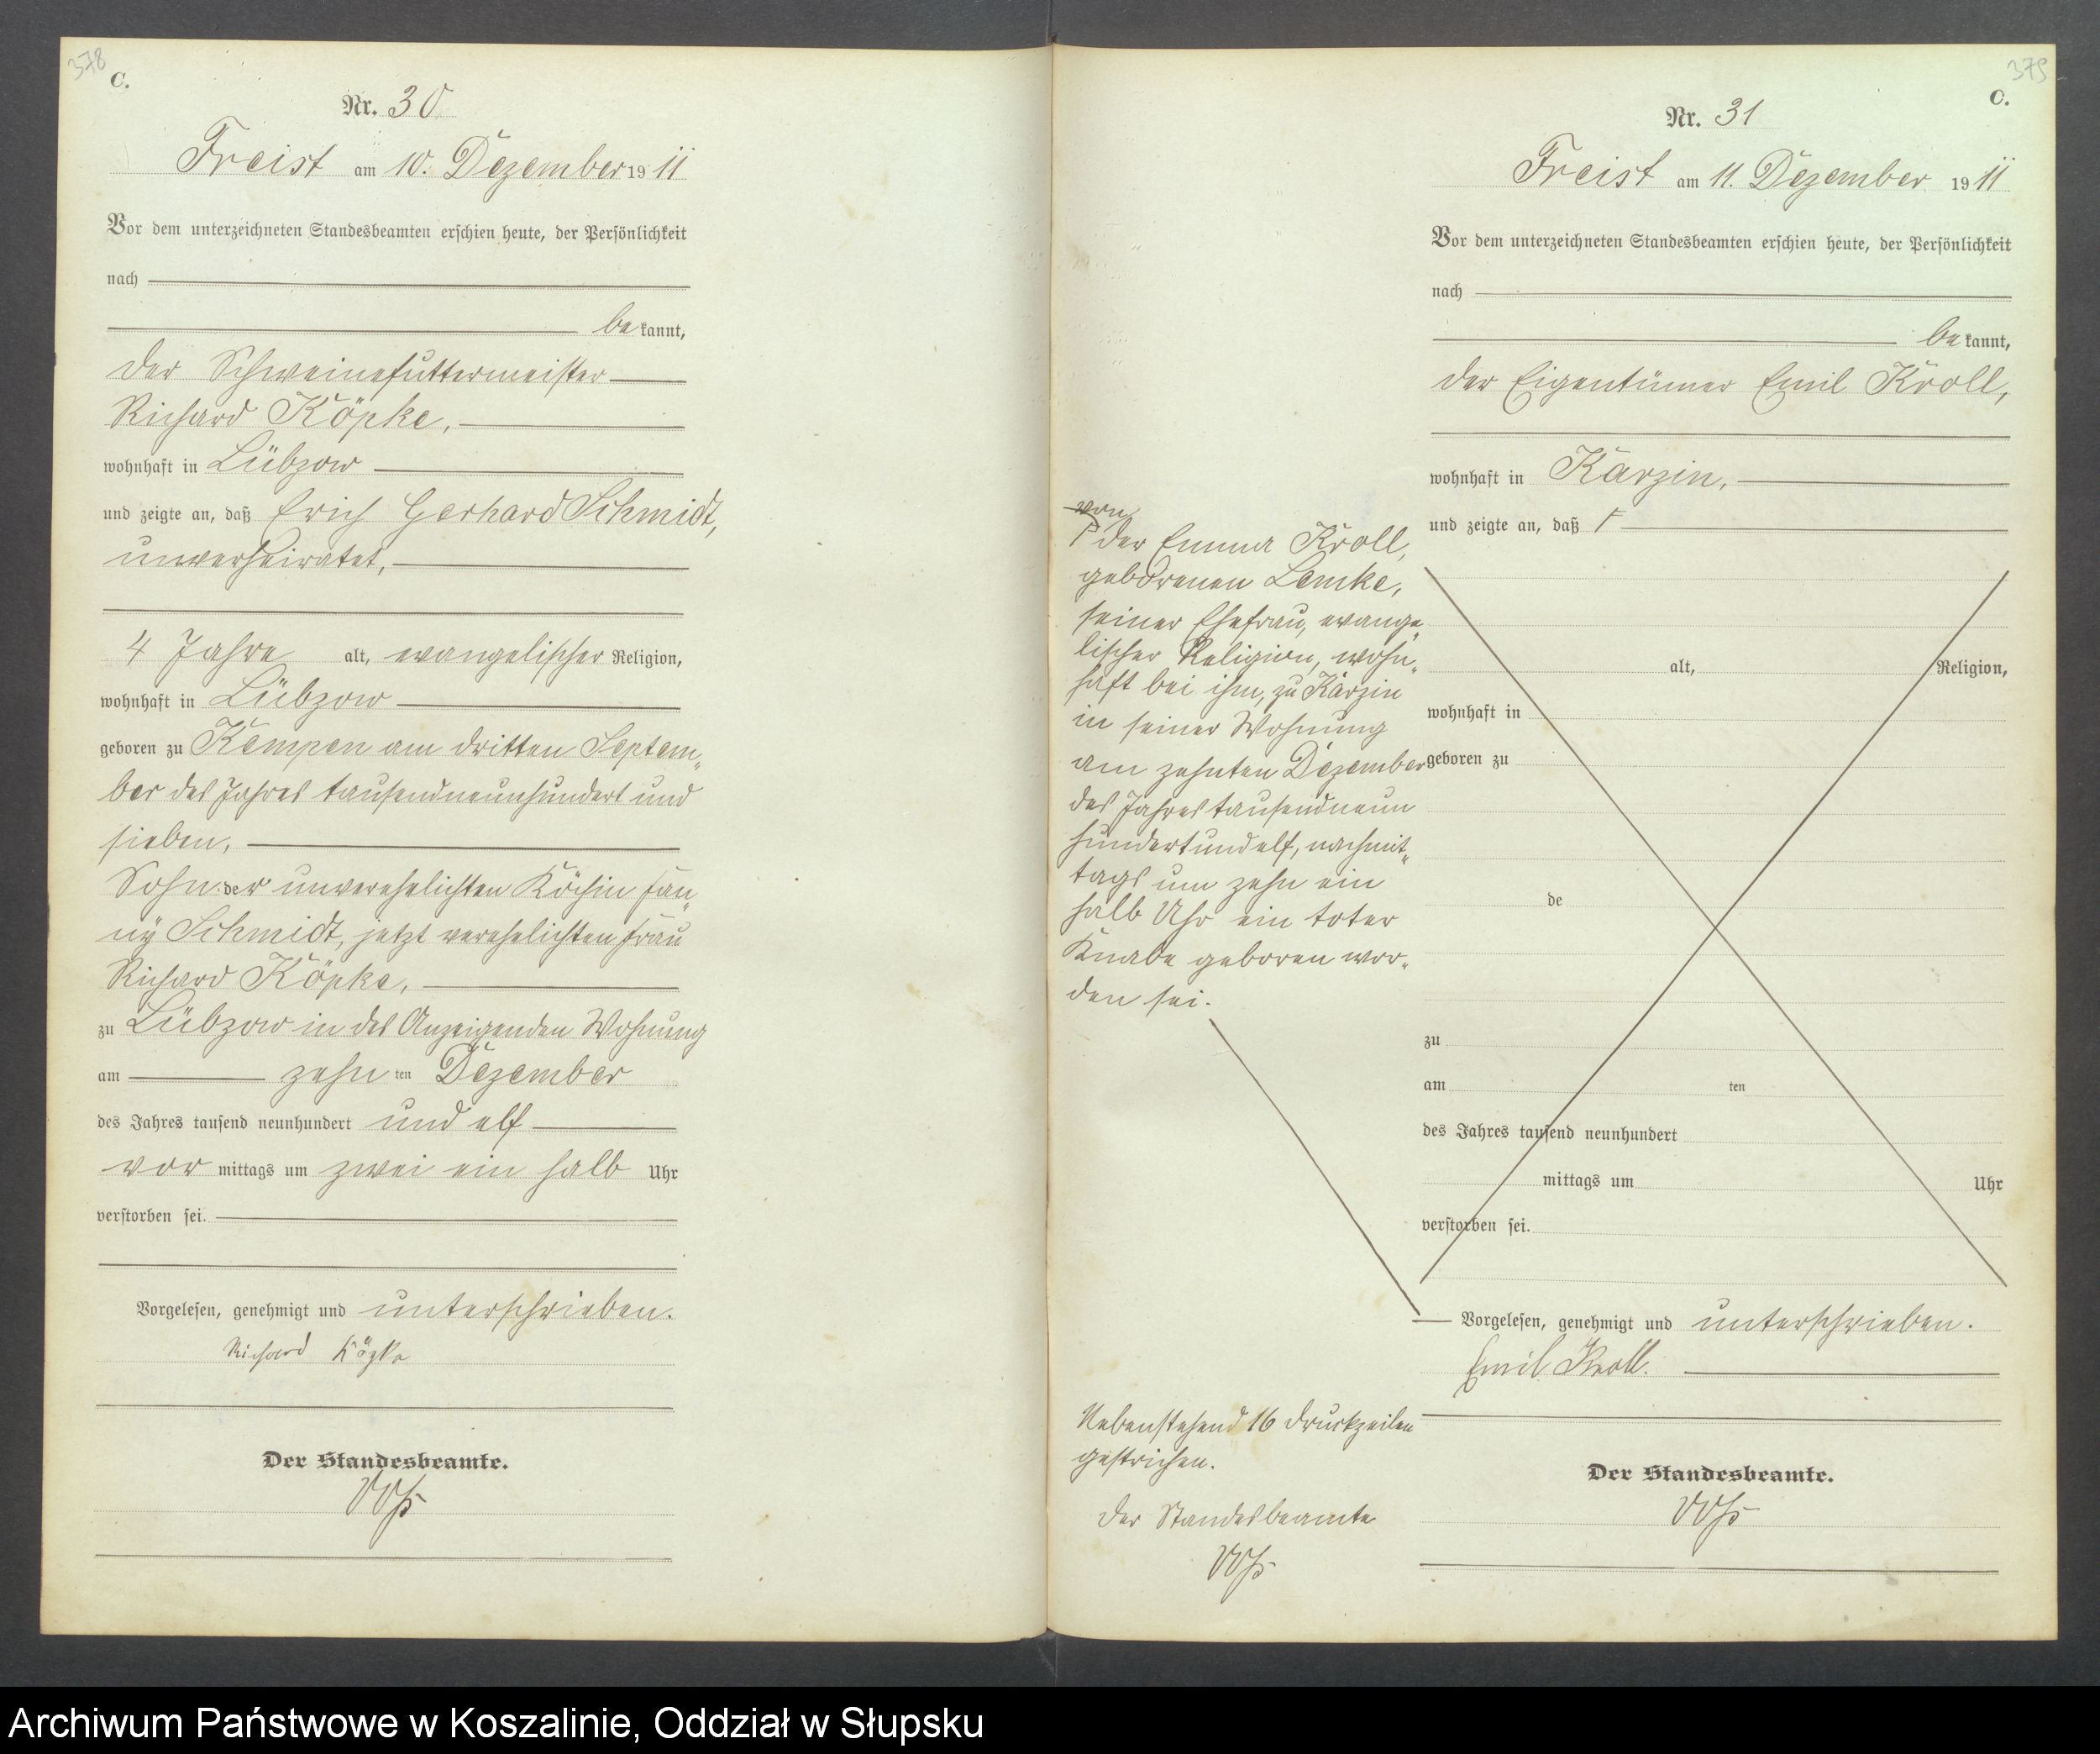 378
C.
Nr. 30
Freist am 10. Dezember 1911
Vor dem unterzeichneten Standesbeamten erschien heute, der Persönlichkeit
nach
bekannt,
der Schweinefuttermeister
Richard Köpke,
wohnhaft in Lübzow
und zeigte an, daß Erich Gerhard Schmidt,
unverheiratet,
4 Jahre alt, evangelischer Religion,
wohnhaft in Lübzow
geboren zu Kempen am dritten Septem„
ber des Jahres tausendneunhundert und
sieben,
Sohn der unverehelichten Köchin Fan„
ny Schmidt, jetzt verehelichten Frau
Richard Köpke,
zu Lübzow in des Anzeigenden Wohnung
am zehnten Dezember
des Jahres tausend neunhundert und elf
vor mittags um zwei ein halb Uhr
verstorben sei.
Vorgelesen, genehmigt und unterschrieben.
Richard Köpke
Der Standesbeamte.
Voß
379
C.
Nr. 31
Freist am 11. Dezember 1911
Vor dem unterzeichneten Standesbeamten erschien heute, der Persönlichkeit
nach
bekannt,
der Eigentümer Emil Kroll,
wohnhaft in Karzin,
und zeigte an, daß Γ
von
Γ der Emma Kroll,
geborenen Lemke,
seiner Ehefrau, evange„
lischer Religion, wohn„
haft bei ihm, zu Karzin
in seiner Wohnung
am zehnten Dezember
des Jahres tausendneun
hundertundelf, nachmit„
tags um zehn ein
halb Uhr ein toter
Knabe geboren wor„
den sei.
alt, Religion,
wohnhaft in
geboren zu
de
zu
am ten
des Jahres tausend neunhundert
mittags um Uhr
verstorben sei.
Vorgelesen, genehmigt und unterschrieben.
Emil Kroll.
Nebenstehend 16 Druckzeilen
gestrichen.
Der Standesbeamte
Voß
Der Standesbeamte.
Voß
Archiwum Państwowe w Koszalinie, Oddział w Słupsku